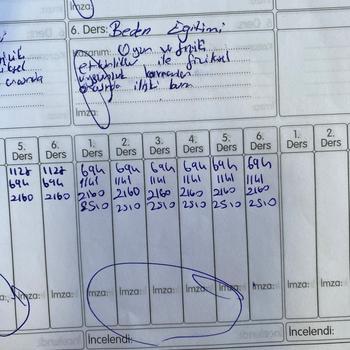 İmza:
6. Ders: Beden Eğitimi
Kazanım: Oyun ve fiziki
etkinlikler ile fiziksel
uygunluk kavramları
arasında ilişki kurar
İmza:
5. Ders 6. Ders 1. Ders 2. Ders 3. Ders 4. Ders 5. Ders 6. Ders 1. Ders 2. Ders
1127 1127 694 694 694 694 694 694
694 694 1141 1141 1141 1141 1141 1141
2160 2160 2160 2160 2160 2160 2160 2160
2510 2510 2510 2510 2510 2510
İmza: İmza: İmza: İmza: İmza: İmza: İmza: İmza: İmza:
İncelendi: İncelendi: